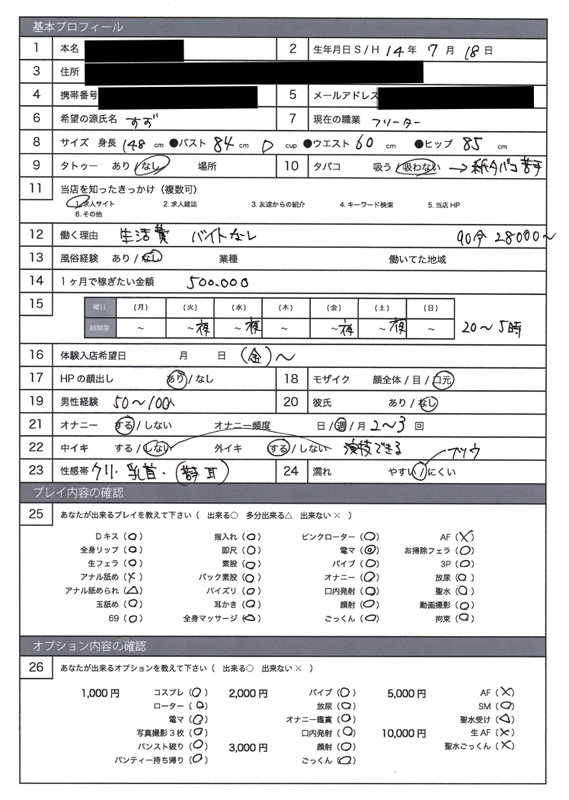 基本プロフィール
1 本名 2 生年月日 S / H 14 年 7 月 18 日
3 住所
4 携帯番号 5 メールアドレス
6 希望の源氏名 すず 7 現在の職業 フリーター
8 サイズ 身長 148 cm ●バスト 84 cm D cup ●ウエスト 60 cm ●ヒップ 85 cm
9 タトゥー あり / なし 場所 10 タバコ 吸う / 吸わない → 紙タバコ苦手
11 当店を知ったきっかけ（複数可）
1.求人サイト 2.求人雑誌 3.友達からの紹介 4.キーワード検索 5.当店HP
6.その他
12 働く理由 生活費 バイトなし 90分 28000〜
13 風俗経験 あり / なし 業種 働いてた地域
14 1ヶ月で稼ぎたい金額 500.000
15 曜日 (月) (火) (水) (木) (金) (土) (日)
時間帯 〜 〜夜 〜夜 〜 〜夜 〜夜 〜 20〜5時
16 体験入店希望日 月 日 (金)〜
17 HPの顔出し あり / なし 18 モザイク 顔全体 / 目 / 口元
19 男性経験 50〜100人 20 彼氏 あり / なし
21 オナニー する / しない オナニー頻度 日 / 週 / 月 2〜3 回
22 中イキ する / しない 外イキ する / しない 演技できる
フツウ
23 性感帯 クリ・乳首・(苦手 耳) 24 濡れ やすい / にくい
プレイ内容の確認
25 あなたが出来るプレイを教えて下さい（ 出来る○ 多分出来る△ 出来ない× ）
Dキス (○) 指入れ (○) ピンクローター (○) AF (×)
全身リップ (○) 即尺 (○) 電マ (◎) お掃除フェラ (○)
生フェラ (○) 素股 (○) バイブ (○) 3P (○)
アナル舐め (×) バック素股 (○) オナニー (○) 放尿 (○)
アナル舐められ (△) パイズリ (○) 口内発射 (○) 聖水 (○)
玉舐め (○) 耳かき (○) 顔射 (○) 動画撮影 (○)
69 (○) 全身マッサージ (△) ごっくん (○) 拘束 (○)
オプション内容の確認
26 あなたが出来るオプションを教えて下さい（ 出来る○ 出来ない× ）
1,000円 コスプレ (○) 2,000円 バイブ (○) 5,000円 AF (×)
ローター (○) 放尿 (○) SM (○)
電マ (○) オナニー鑑賞 (○) 聖水受け (△)
写真撮影3枚 (○) 口内発射 (○) 10,000円 生AF (×)
パンスト破り (○) 3,000円 顔射 (○) 聖水ごっくん (×)
パンティー持ち帰り (○) ごっくん (○)